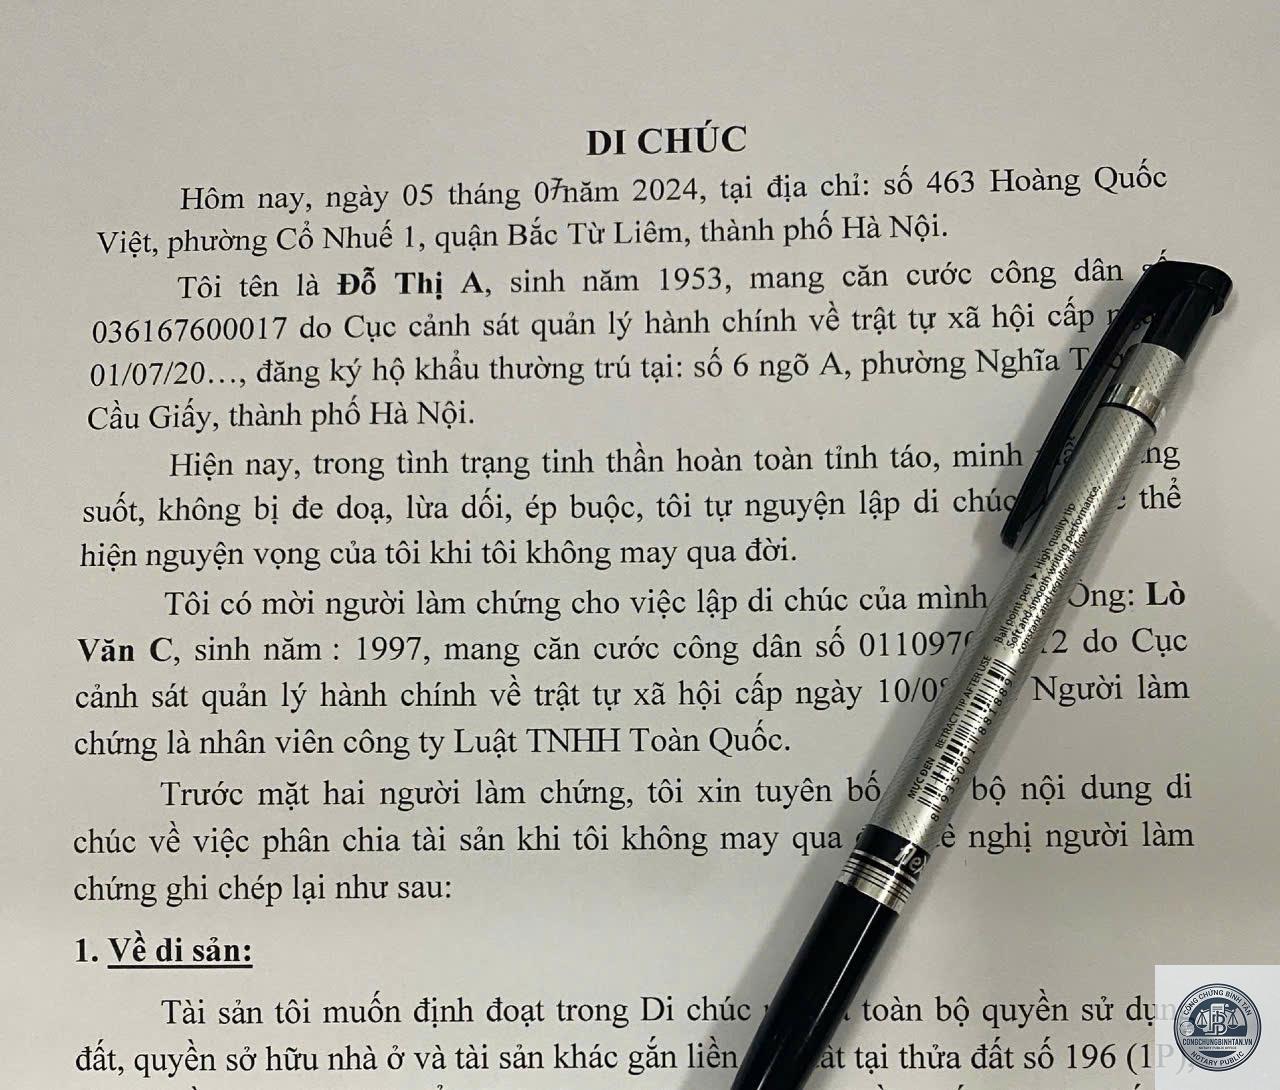 DI CHÚC
Hôm nay, ngày 05 tháng 07 năm 2024, tại địa chỉ: số 463 Hoàng Quốc
Việt, phường Cổ Nhuế 1, quận Bắc Từ Liêm, thành phố Hà Nội.
Tôi tên là Đỗ Thị A, sinh năm 1953, mang căn cước công dân số
036167600017 do Cục cảnh sát quản lý hành chính về trật tự xã hội cấp
01/07/20…, đăng ký hộ khẩu thường trú tại: số 6 ngõ A, phường Nghĩa
Cầu Giấy, thành phố Hà Nội.
Hiện nay, trong tình trạng tinh thần hoàn toàn tỉnh táo, minh
suốt, không bị đe doạ, lừa dối, ép buộc, tôi tự nguyện lập di chúc thể
hiện nguyện vọng của tôi khi tôi không may qua đời.
Tôi có mời người làm chứng cho việc lập di chúc của mình Ông: Lò
Văn C, sinh năm : 1997, mang căn cước công dân số do Cục
cảnh sát quản lý hành chính về trật tự xã hội cấp ngày Người làm
chứng là nhân viên công ty Luật TNHH Toàn Quốc.
Trước mặt hai người làm chứng, tôi xin tuyên bố bộ nội dung di
chúc về việc phân chia tài sản khi tôi không may qua nghị người làm
chứng ghi chép lại như sau:
1. Về di sản:
Tài sản tôi muốn định đoạt trong Di chúc toàn bộ quyền sử dụng
đất, quyền sở hữu nhà ở và tài sản khác gắn liền tại thửa đất số 196 (1P),
Ball point pen ▸ High quality tip
Soft and smooth writing performance.
Constant and regular ink flow
MỰC ĐEN RETRACT TIP AFTER USE
8 935001 818891
CÔNG CHỨNG BÌNH TÂN
CONGCHUNGBINHTAN.VN
NOTARY PUBLIC OFFICE
NOTARY PUBLIC